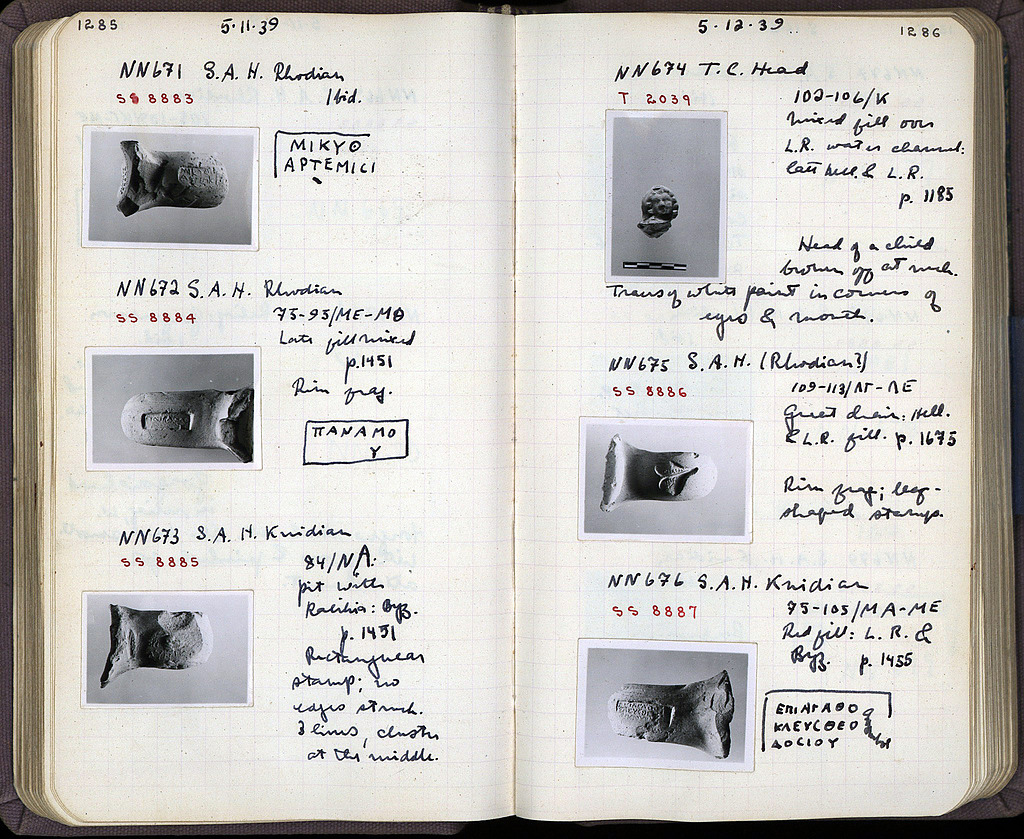 1285
5·11·39
NN671 S.A.H. Rhodian
SS 8883
Ibid.
ΜΙΚΥΘ
ΑΡΤΕΜΙCΙ
NN672 S.A.H. Rhodian
SS 8884
75-95/ΜΕ-ΜΘ
Late fill mixed
p.1451
Rim frag.
ΠΑΝΑΜΟ
Υ
NN673 S.A.H. Knidian
SS 8885
84/ΝΑ:
pit with
: Byz.
p. 1451
Rectangular
stamp; no
edges struck.
3 lines, cluster
at the middle.
5·12·39
1286
NN674 T.C. Head
T 2039
102-106/Κ
mixed fill over
L.R. water channel:
late Hell. & L.R.
p. 1185
Head of a child
broken off at neck.
Traces of white paint in corners of
eyes & mouth.
NN675 S.A.H. (Rhodian?)
SS 8886
109-113/ΛΓ-ΛΕ
Great drain: Hell.
& L.R. fill. p. 1675
Rim frag; leaf-
shaped stamp.
NN676 S.A.H. Knidian
SS 8887
75-105/ΜΑ-ΜΕ
Red fill: L.R. &
Byz. p. 1455
ΕΠΙΑΓΑΘΟ
ΚΛΕΥCΘΕΟ
ΔΟCΙΟΥ